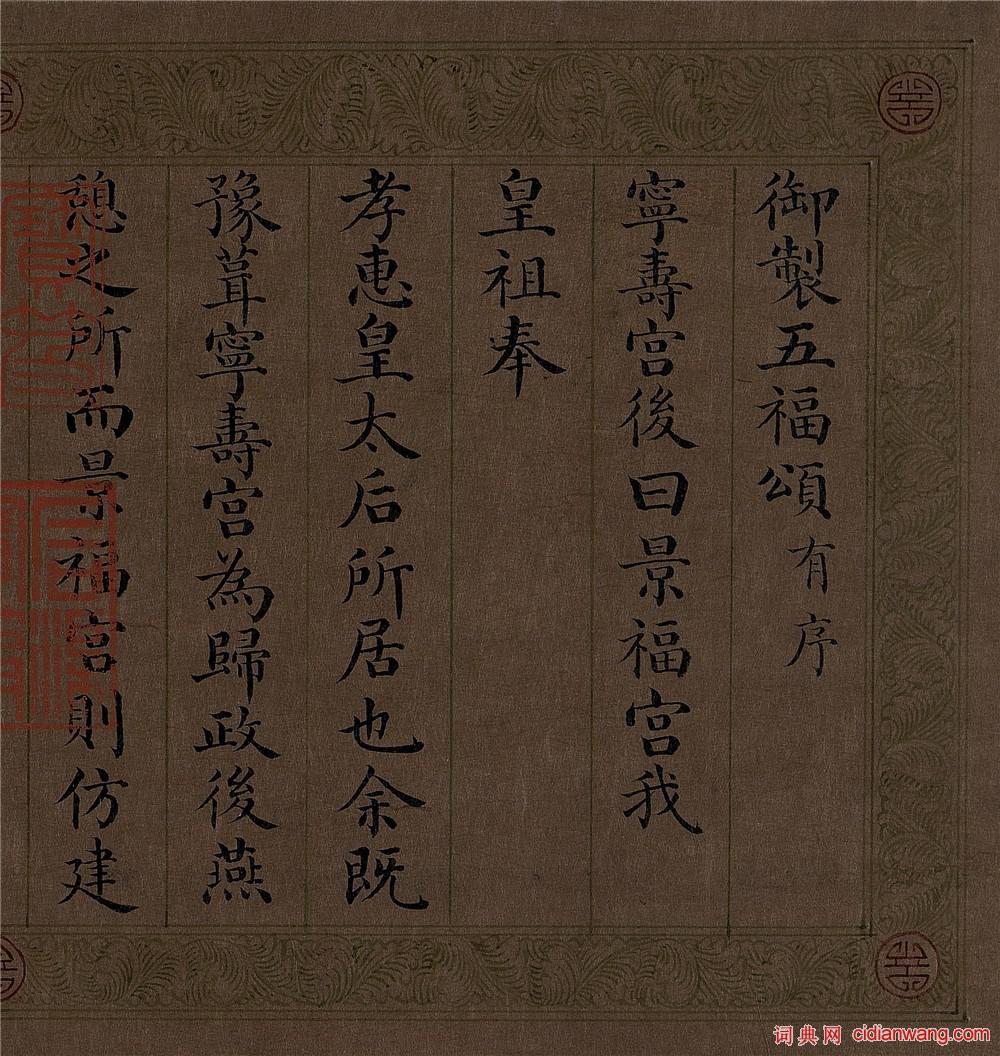 御製五福頌有序
寧壽宮後曰景福宮我
皇祖奉
孝惠皇太后所居也余既
豫葺寧壽宮為歸政後燕
憩之所而景福宮則仿建
词典网 cidianwang.com